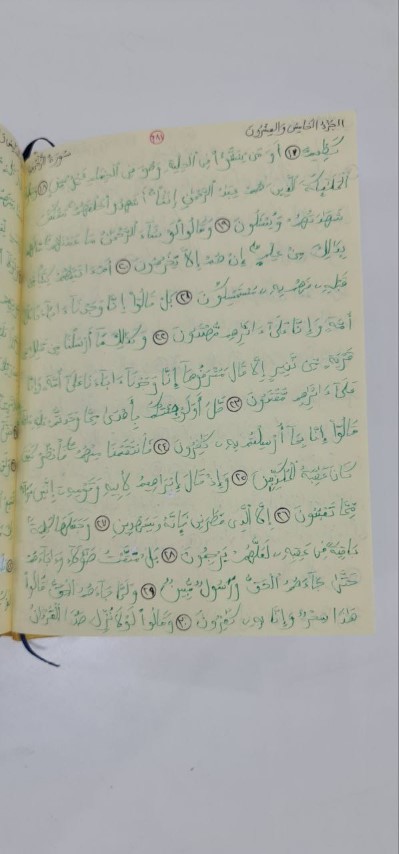 الجزء الخامس والعشرون
سورة الزخرف
كظيم ١٧ أو من ينشؤا في الحلية وهو في الخصام غير مبين ١٨
الملائكة الذين هم عبد الرحمن إناثا أشهدوا خلقهم ستكتب
شهدتهم ويسئلون ١٩ وقالوا لو شاء الرحمن ما عبدنهم ما لهم
بذلك من علم إن هم إلا يخرصون ٢٠ أم ءاتينهم كتابا
قبله فهم به مستمسكون ٢١ بل قالوا إنا وجدنا ءاباءنا على
أمة وإنا على ءاثرهم مهتدون ٢٢ وكذلك ما أرسلنا من قبلك
قرية من نذير إلا قال مترفوها إنا وجدنا ءاباءنا على أمة وإنا
على ءاثرهم مقتدون ٢٣ قل أولو جئتكم بأهدى مما وجدتم عليه
قالوا إنا بما أرسلتم به كفرون ٢٤ فانتقمنا منهم فانظر كيف
كان عقبة المكذبين ٢٥ وإذ قال إبراهيم لأبيه وقومه إنني براء
مما تعبدون ٢٦ إلا الذي فطرني فإنه سيهدين ٢٧ وجعلها كلمة
باقية في عقبه لعلهم يرجعون ٢٨ بل متعت هؤلاء وءاباءهم
حتى جاءهم الحق ورسول مبين ٢٩ ولما جاءهم الحق قالوا
هذا سحر وإنا به كفرون ٣٠ وقالوا لولا نزل هذا القرءان